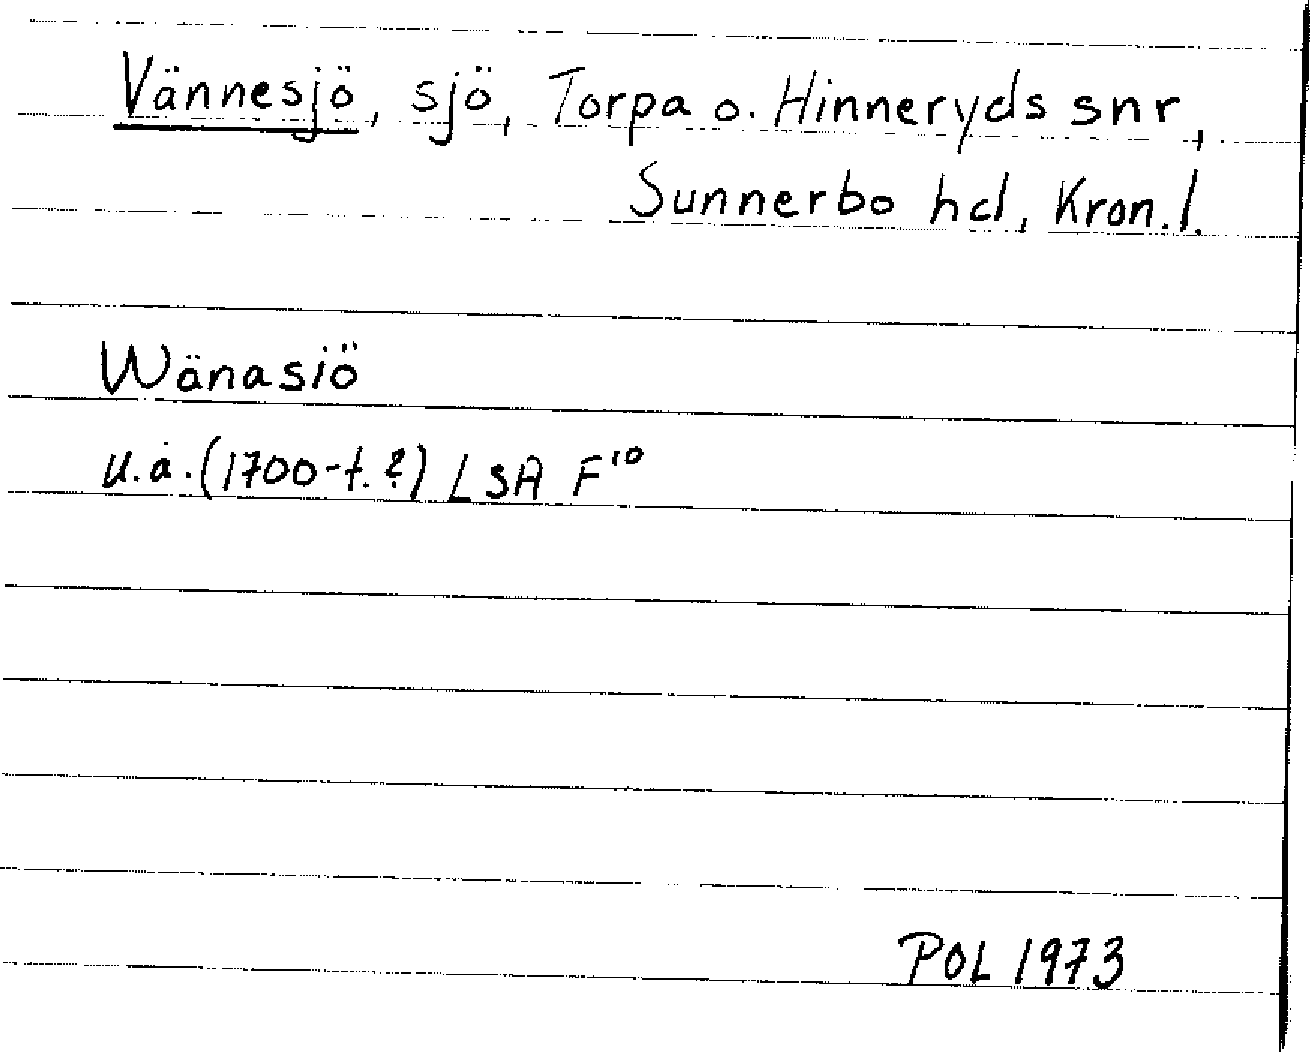 Vännesjö, sjö, Torpa o. Hinneryds snr,
Sunnerbo hd, Kron. l.
Wänasiö
u.å. (1700-t. ?) LSA F¹⁰
POL 1973